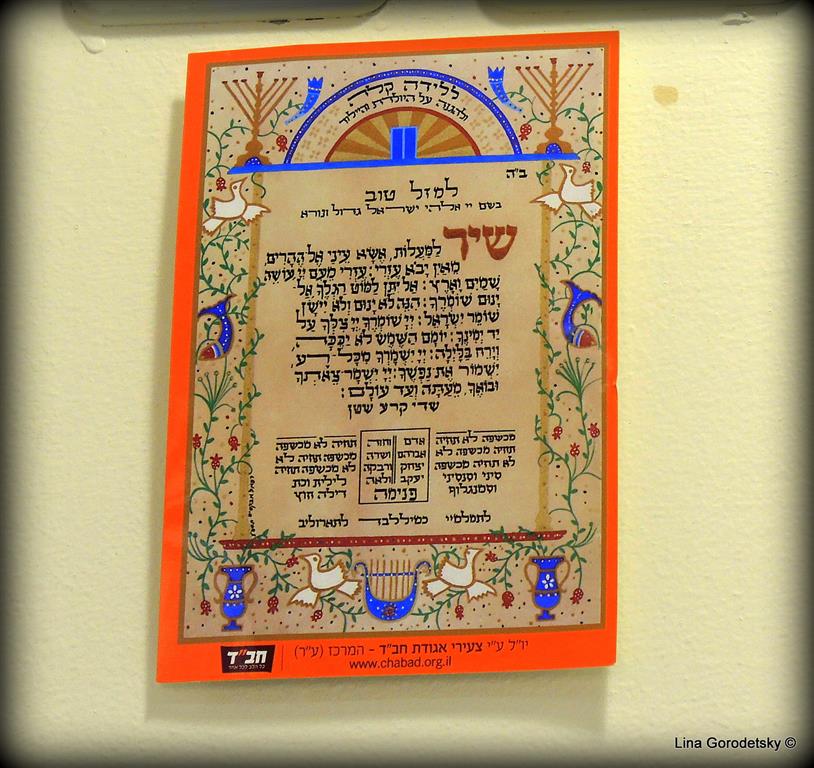 ללידה קלה
ולהגנה על היולדת והיילוד
ב"ה
למזל טוב
בשם יי אלהי ישראל גדול ונורא
שיר
לַמַּעֲלוֹת, אֶשָּׂא עֵינַי אֶל הֶהָרִים,
מֵאַיִן יָבֹא עֶזְרִי: עֶזְרִי מֵעִם יְיָ עוֹשֵׂה
שָׁמַיִם וָאָרֶץ: אַל יִתֵּן לַמּוֹט רַגְלֶךָ אַל
יָנוּם שׁוֹמְרֶךָ: הִנֵּה לֹא יָנוּם וְלֹא יִישָׁן
שׁוֹמֵר יִשְׂרָאֵל: יְיָ שׁוֹמְרֶךָ יְיָ צִלְּךָ עַל
יַד יְמִינֶךָ: יוֹמָם הַשֶּׁמֶשׁ לֹא יַכֶּכָּה,
וְיָרֵחַ בַּלָּיְלָה: יְיָ יִשְׁמָרְךָ מִכָּל רָע,
יִשְׁמוֹר אֶת נַפְשֶׁךָ: יְיָ יִשְׁמָר צֵאתְךָ
וּבוֹאֶךָ, מֵעַתָּה וְעַד עוֹלָם:
שדי קרע שטן
מכשפה לא תחיה
מכשפה לא תחיה לא
לא תחיה מכשפה
סיני וסנסיני
וסמנגלוף
אדם וחוה
אברהם ושרה
יצחק ורבקה
יעקב ולאה
פנימה
תחיה לא מכשפה
מכשפה תחיה לא
לא מכשפה תחיה
לילית וכת
דילה חוץ
יו"ל ע"י צעירי אגודת חב"ד - המרכז (ע"ר)
www.chabad.org.il
חב"ד
כל הלב לכל אחד
Lina Gorodetsky ©